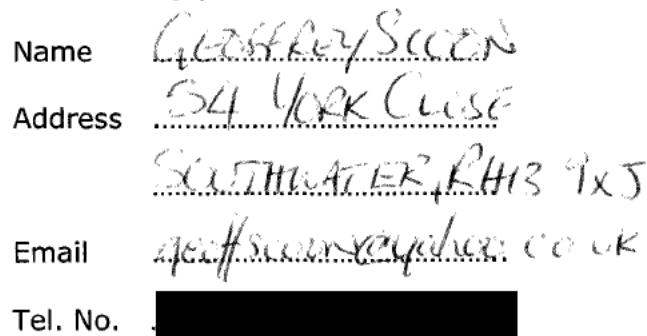 Name GEOFFREY SCOON
Address 54 YORK CLOSE
SOUTHWATER, RH13 9XJ
Email geoffscoon@yahoo.co.uk
Tel. No.